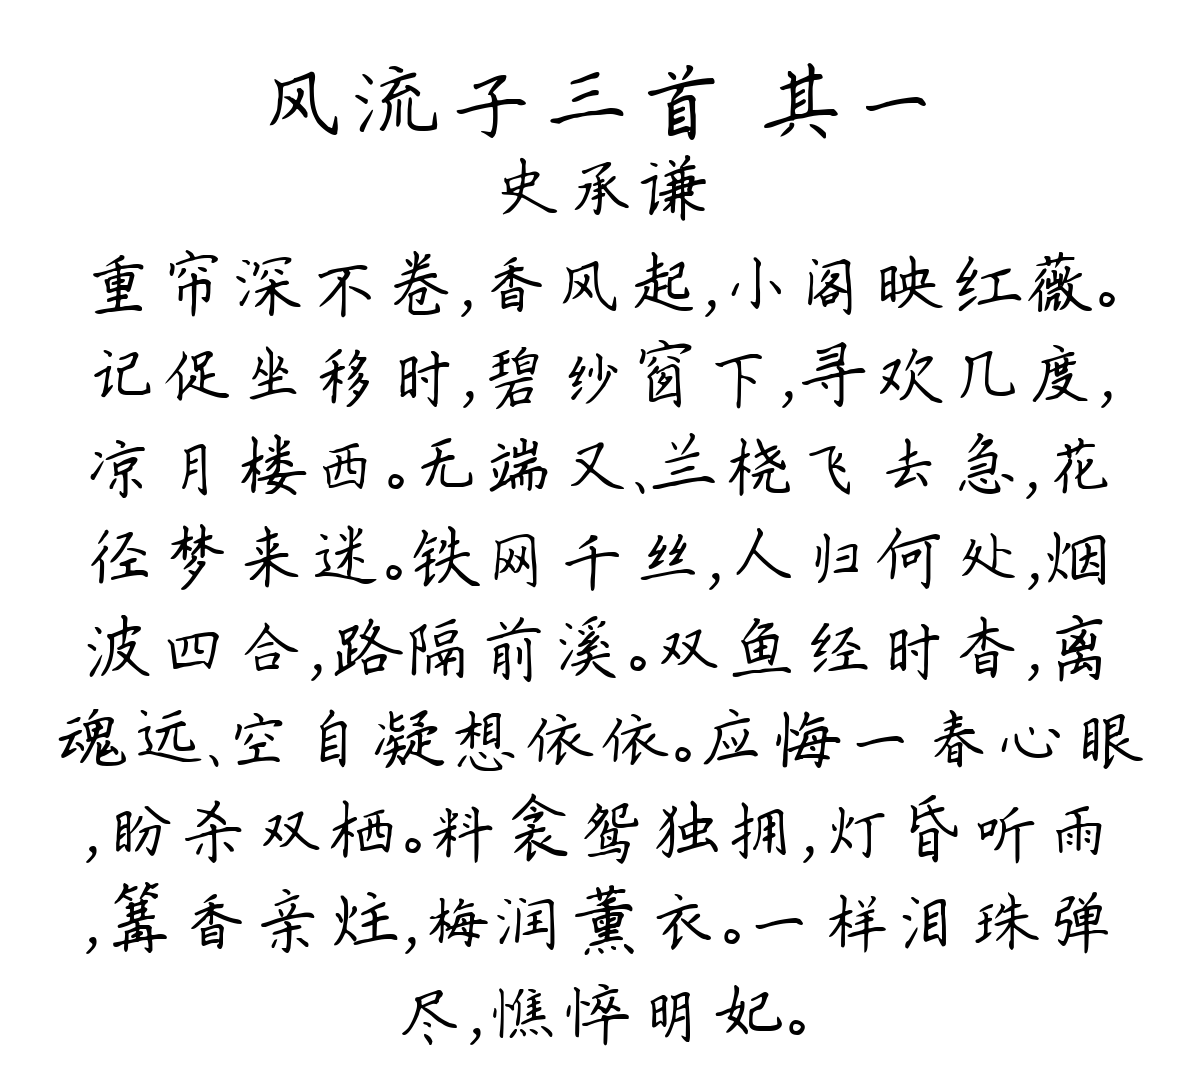 风流子三首 其一
史承谦
重帘深不卷,香风起,小阁映红薇。
记促坐移时,碧纱窗下,寻欢几度,
凉月楼西。无端又、兰桡飞去急,花
径梦来迷。铁网千丝,人归何处,烟
波四合,路隔前溪。双鱼经时杳,离
魂远、空自凝想依依。应悔一春心眼
,盼杀双栖。料衾鸳独拥,灯昏听雨
,篝香亲炷,梅润薰衣。一样泪珠弹
尽,憔悴明妃。